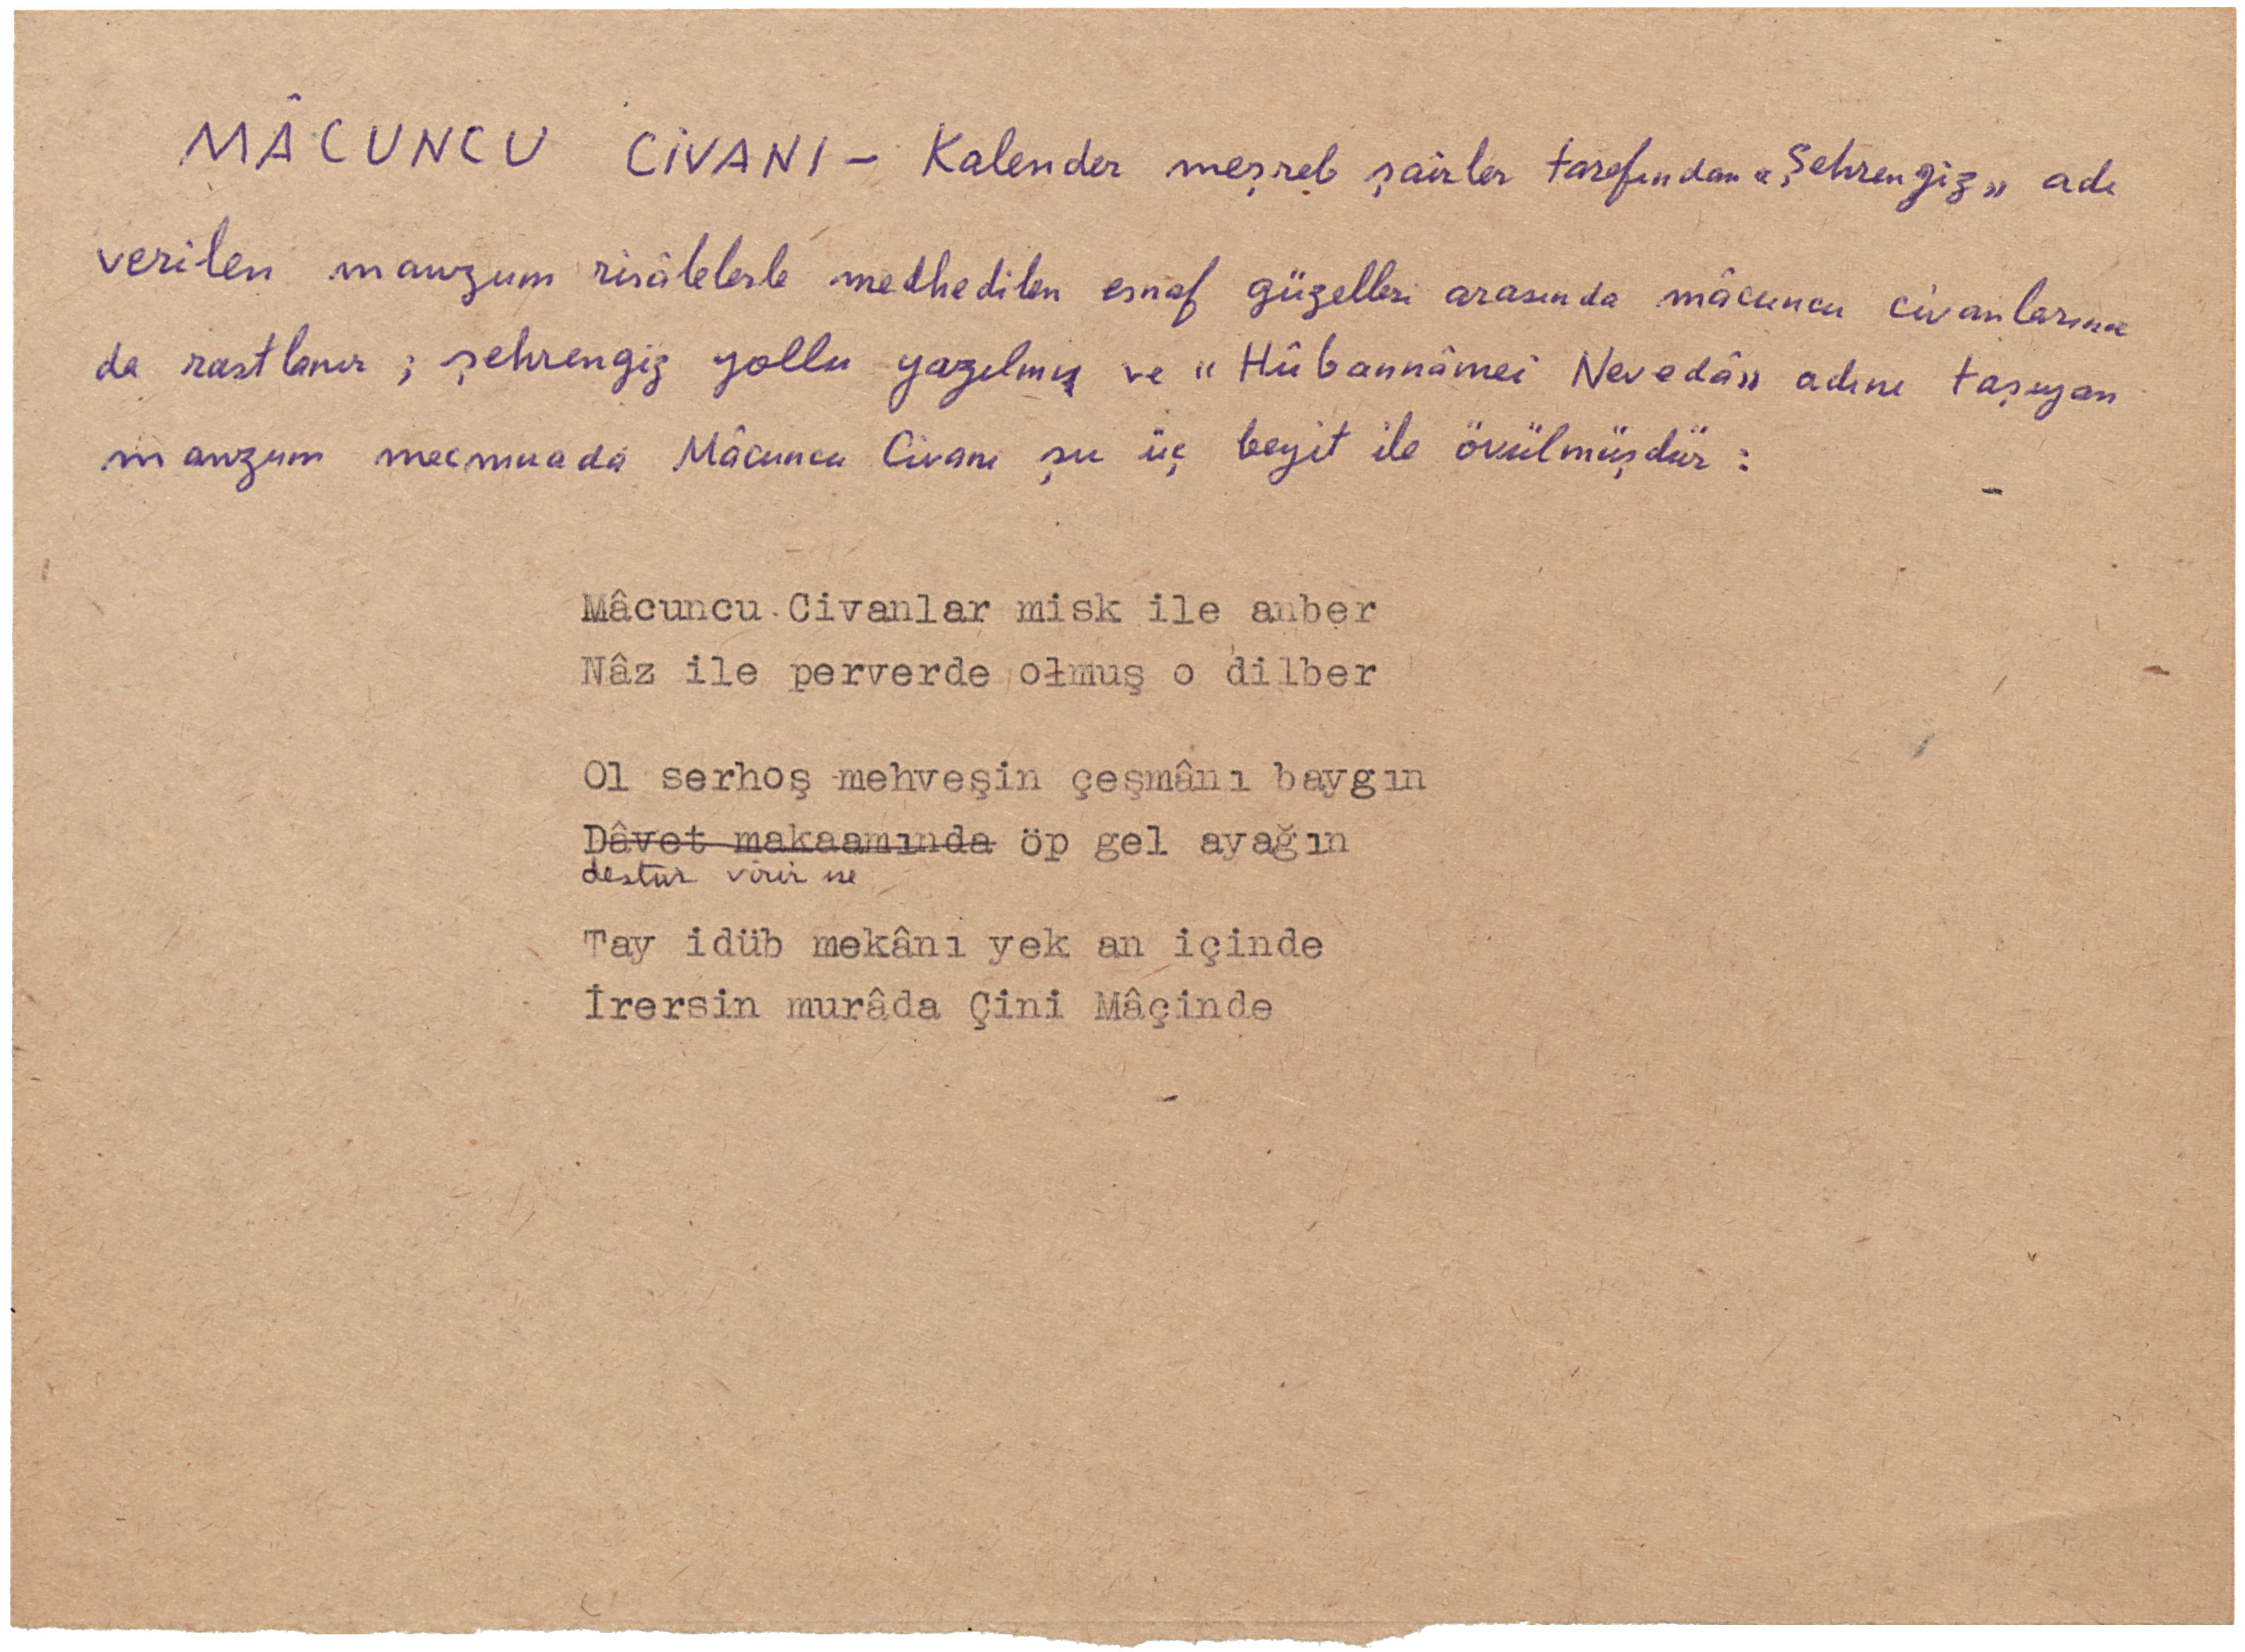 MÂCUNCU CİVANI – Kalender meşreb şairler tarafından «Şehrengiz» adı
verilen manzum risâlelerle medhedilen esnaf güzelleri arasında mâcuncu civanlarına
da rastlanır ; şehrengiz yollu yazılmış ve "Hûbannâmei Nevedâ» adını taşıyan
manzum mecmuada Mâcuncu Civanı şu üç beyit ile övülmüşdür :
Mâcuncu Civanlar misk ile anber
Nâz ile perverde olmuş o dilber
Ol serhoş mehveşin çeşmânı baygın
Dâvet makaamında öp gel ayağın
destur virir ise
Tay idüb mekânı yek an içinde
İrersin murâda Çini Mâçinde